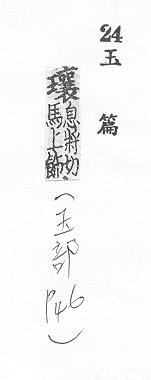 24
玉篇
瓖息將切馬上飾
(玉部P46)